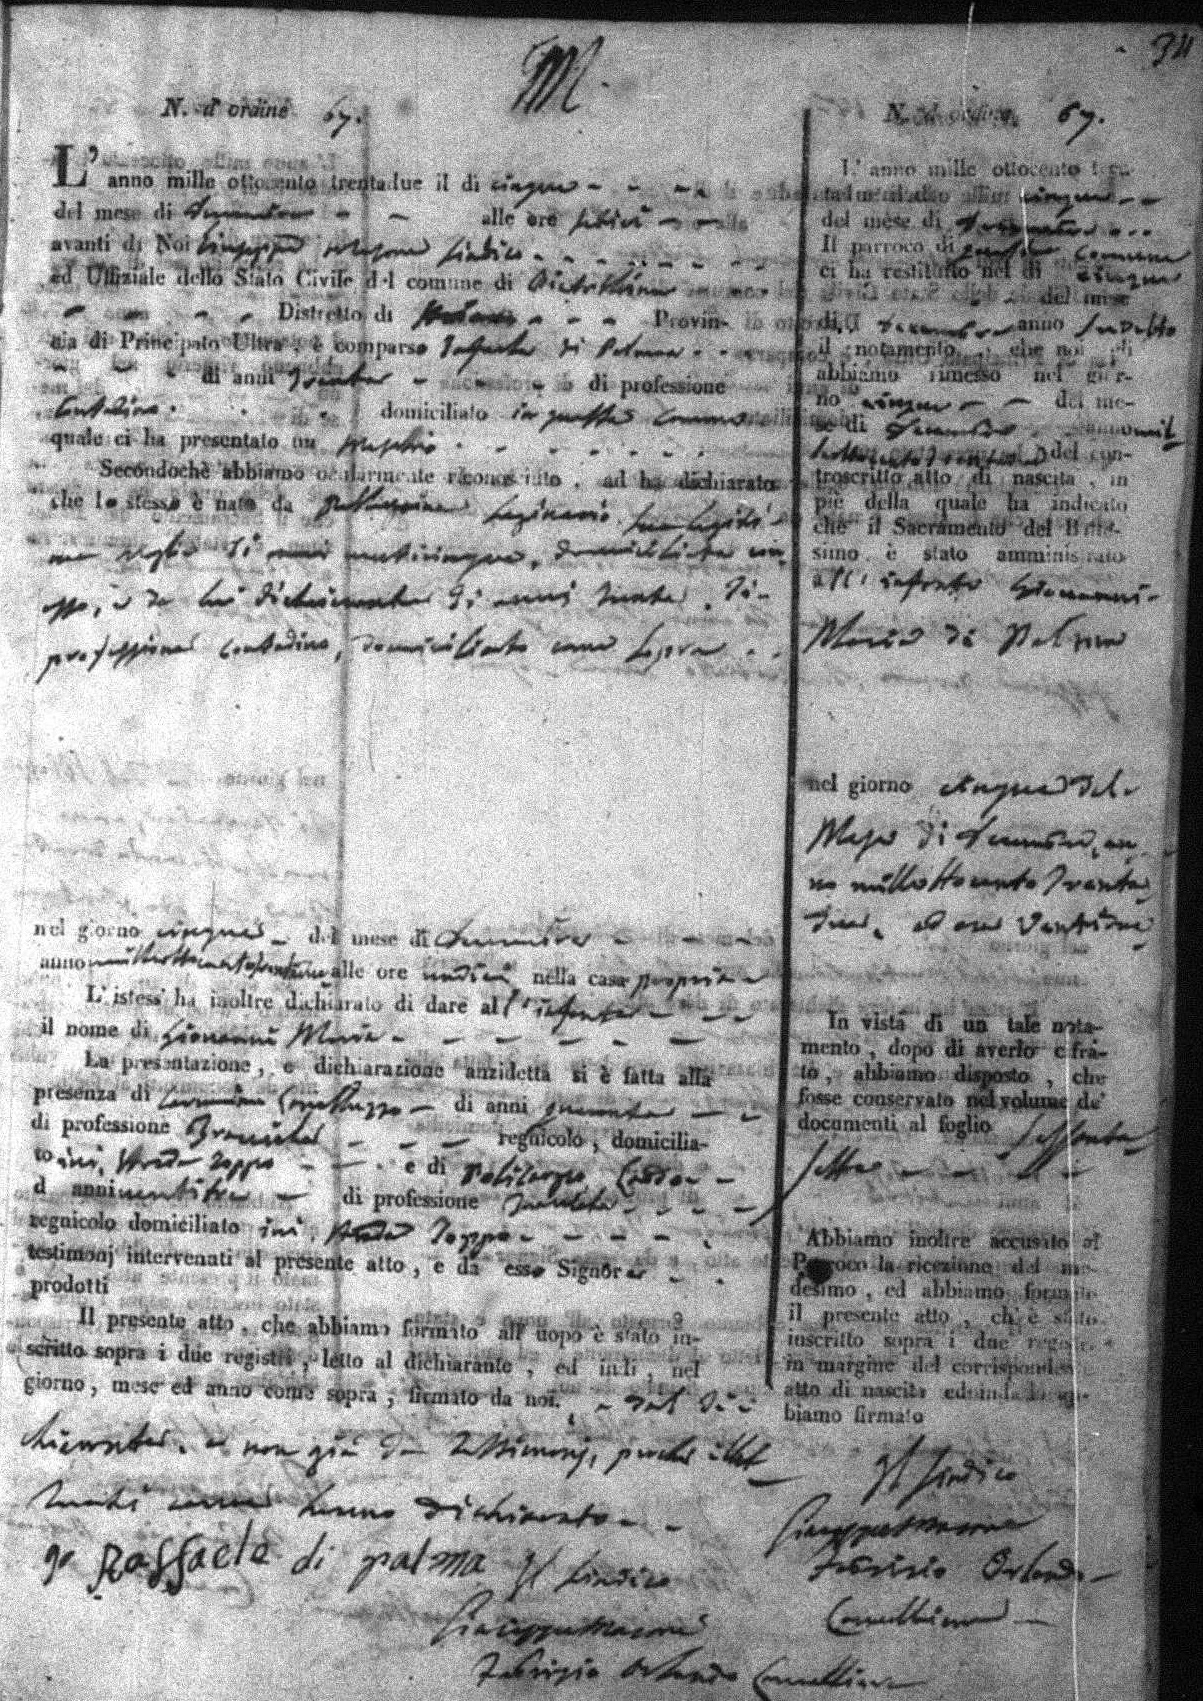 34
M.
N. d'ordine 67.
L'anno mille ottocento trentadue il di cinque
del mese di Decembre alle ore sedici
avanti di Noi Giuseppe Sindico
ed Uffiziale dello Stato Civile del comune di
Distretto di Provin-
cia di Principato Ultra, è comparso Raffaele di Palma
di anni trenta di professione
Contadino domiciliato in questo Comune
quale ci ha presentato un maschio
Secondochè abbiamo ocularmente riconosciuto, ad ha dichiarato
che lo stesso è nato da sua legitti-
ma moglie di anni venticinque, domiciliata con
esso, e da lui dichiarante di anni trenta, di
professione contadino, domiciliato come sopra
nel giorno cinque del mese di Decembre
anno milleottocentotrentadue alle ore undici nella casa propria
L'istess' ha inoltre dichiarato di dare all'infante
il nome di Giovanni Maria
La presentazione, e dichiarazione anzidetta si è fatta alla
presenza di di anni quaranta
di professione Bracciale regnicolo, domicilia-
to ivi, Strada Toppo e di Policarpo
d anni ventitre di professione
regnicolo domiciliato ivi, Strada Toppo
testimonj intervenuti al presente atto, e da esso Signor
prodotti
Il presente atto, che abbiamo formato all' uopo è stato in-
scritto sopra i due registri, letto al dichiarante, ed indi, nel
giorno, mese ed anno come sopra, firmato da noi. dal di-
chiarante, e non già da Testimonj, perche illet-
terati come hanno dichiarato
Io Raffaele di palma Il Sindico
Giuseppe
Fabrizio Orlando Cancelliere
N. d'ordine 67.
L'anno mille ottocento tren-
cinque
del mese di Decembre
Il parroco di questo Comune
ci ha restituito nel di cinque
del mese
di Decembre anno suddetto
il notamento, che noi gli
abbiamo rimesso nel gior-
no cinque del me-
se di Decembre anno mil
del con-
troscritto atto di nascita, in
piè della quale ha indicato
che il Sacramento del Batte-
simo è stato amministrato
all' infante Giovanni
Maria di Palma
nel giorno cinque del
Mese di Decembre, an-
no milleottocento trenta
due, ad ore ventidue
In vista di un tale nota-
mento, dopo di averlo cifra-
to, abbiamo disposto, che
fosse conservato nel volume de'
documenti al foglio sessanta
sette
Abbiamo inoltre accusato al
Parroco la ricezione del me-
desimo, ed abbiamo formato
il presente atto, ch'è stato
inscritto sopra i due registri
in margine del corrispondente
atto di nascita ed indi lo ab-
biamo firmato
Il Sindico
Giuseppe
Fabrizio Orlando
Cancelliere